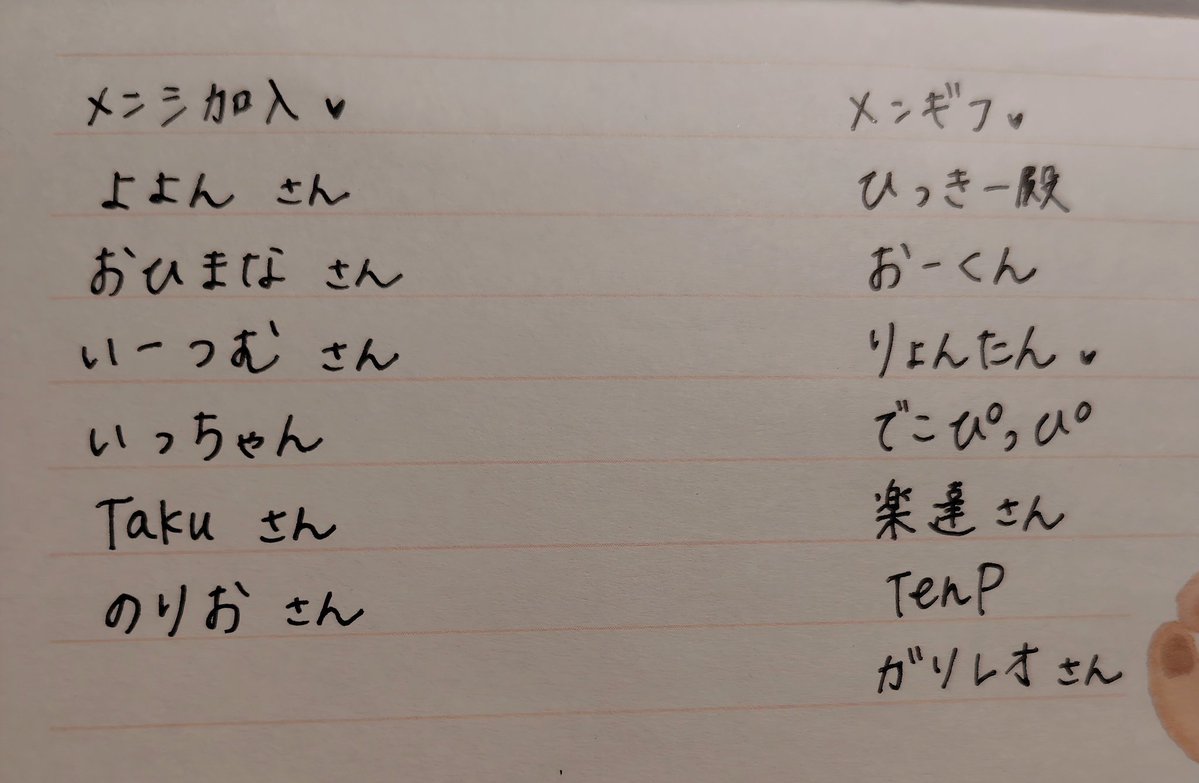 メンシ加入♥
よよん さん
おひまな さん
いーつむ さん
いっちゃん
Taku さん
のりお さん
メンギフ♥
ひっきー殿
おーくん
りょんたん♥
でこぴっぴ
楽達さん
TenP
ガリレオさん